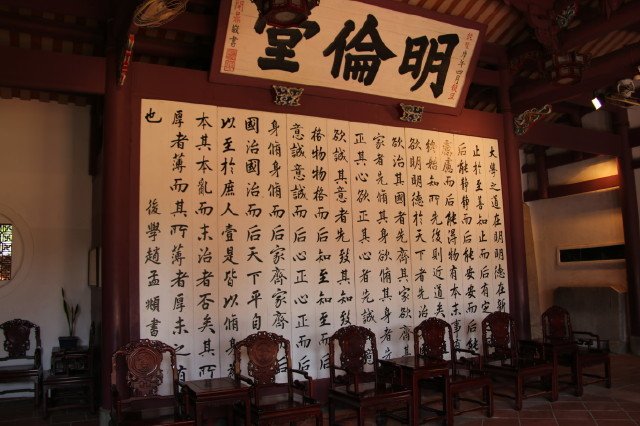 明倫堂
敬書
大學之道在明明德在
止於至善知止而后有定
后能靜靜而后能安安而后
慮慮而后能得物有本末事
終始知所先後則近道矣
欲明明德於天下者先治
欲治其國者先齊其家欲
家者先脩其身欲脩其身者
正其心欲正其心者先誠
欲誠其意者先致其知
格物物格而后知至知至而
意誠意誠而后心正心正而后
身脩身脩而后家齊家齊
國治國治而后天下平自
以至於庶人壹是皆以脩身
本其本亂而末治者否矣其所
厚者薄而其所薄者厚未之
也 後學趙孟頫書